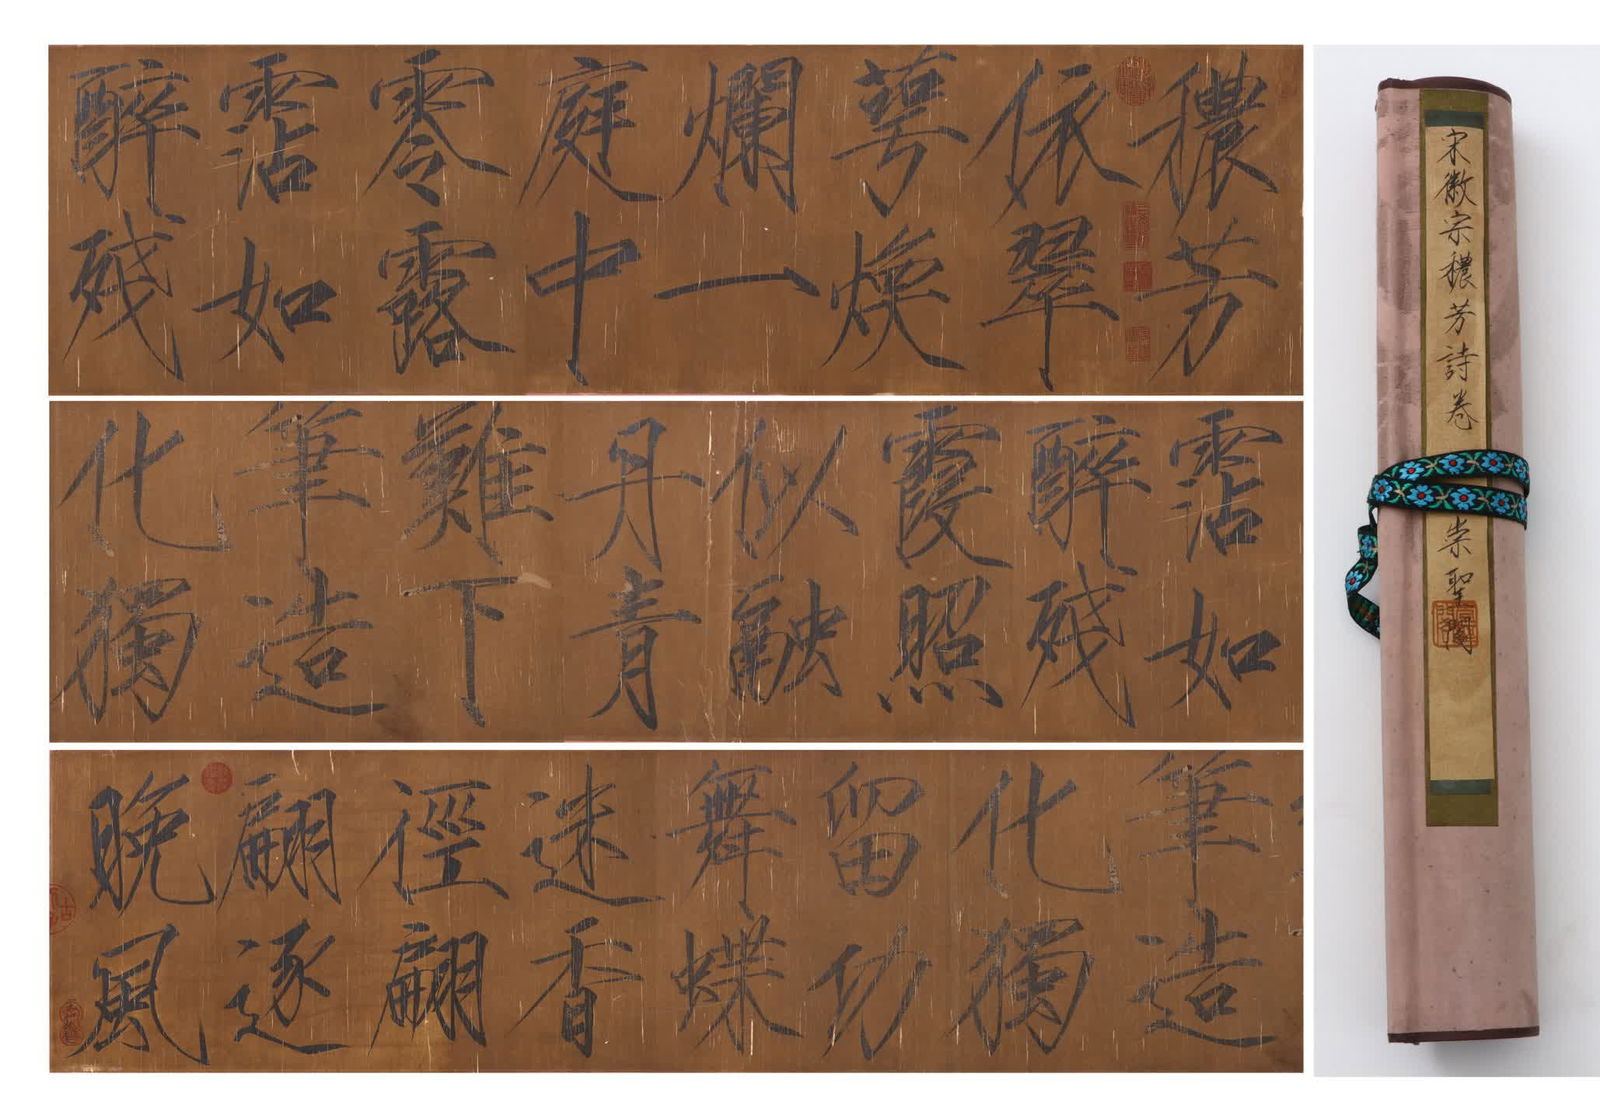 穠芳
依翠
萼煥
爛一
庭中
零露
霑如
醉殘
霑如
醉殘
霞照
似融
丹青
難下
筆造
化獨
筆造
化獨
留功
舞蝶
迷香
徑翩
翩逐
晚風
宋徽宗穠芳詩卷